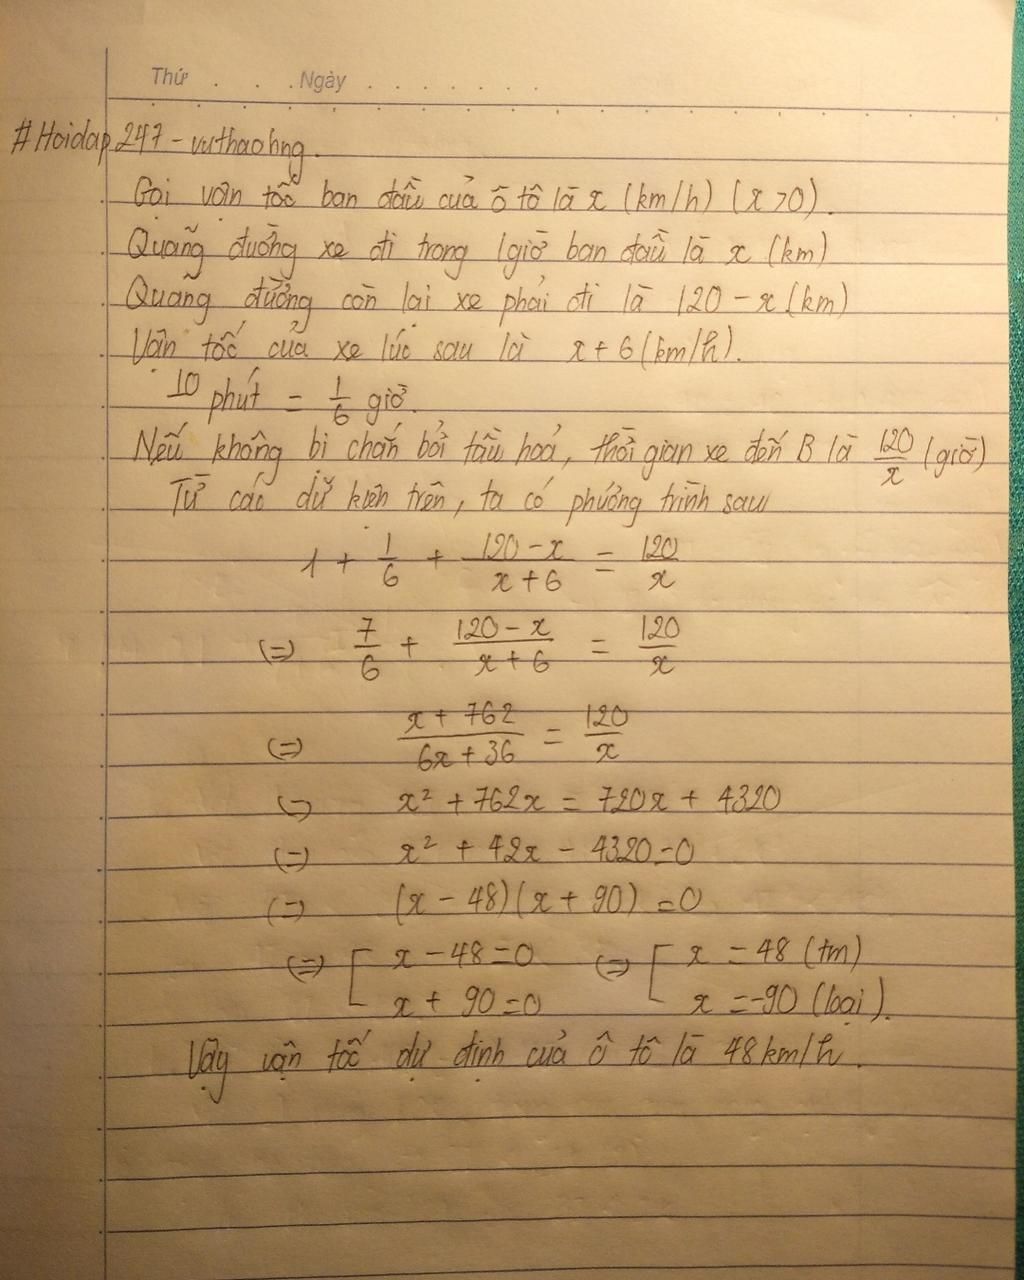 Thứ . . . Ngày . . . . . . .
#Hoidap 247 - vuthaohng.
Gọi vận tốc ban đầu của ô tô là x (km/h) (x > 0).
Quãng đường xe đi trong 1 giờ ban đầu là x (km)
Quãng đường còn lại xe phải đi là 120 - x (km)
Vận tốc của xe lúc sau là x + 6 (km/h).
10 phút = 1/6 giờ.
Nếu không bị chắn bởi tàu hoả, thời gian xe đến B là 120/x (giờ)
Từ các dữ kiện trên, ta có phương trình sau
1 + 1/6 + (120 - x)/(x + 6) = 120/x
(=) 7/6 + (120 - x)/(x + 6) = 120/x
(=) (x + 762)/(6x + 36) = 120/x
(=) x² + 762x = 720x + 4320
(=) x² + 42x - 4320 = 0
(=) (x - 48)(x + 90) = 0
(=) [ x - 48 = 0 (=) [ x = 48 (tm)
x + 90 = 0 x = -90 (loại).
Vậy vận tốc dự định của ô tô là 48 km/h.